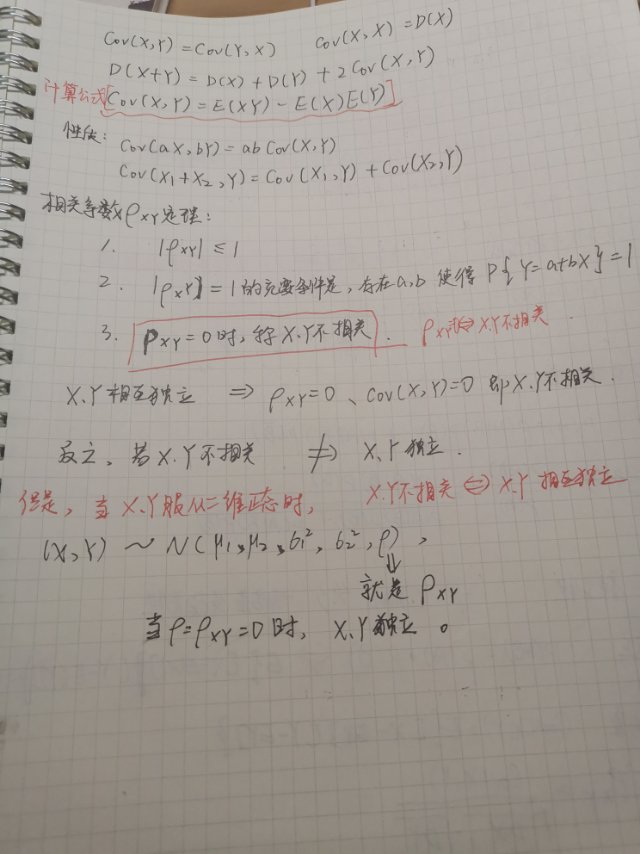 Cov(X,Y) = Cov(Y,X) Cov(X,X) = D(X)
D(X+Y) = D(X) + D(Y) + 2Cov(X,Y)
计算公式[Cov(X,Y) = E(XY) - E(X)E(Y)]
性质: Cov(aX,bY) = ab Cov(X,Y)
Cov(X₁+X₂,Y) = Cov(X₁,Y) + Cov(X₂,Y)
相关系数ρXY定理:
1. |ρXY| ≤ 1
2. |ρXY| = 1的充要条件是,存在a,b 使得 P{Y=a+bX}=1
3. ρXY=0时,称X、Y不相关. X、Y不相关.
X、Y相互独立 ⇒ ρXY=0、Cov(X,Y)=0 即X、Y不相关.
反之,若X、Y不相关 ⇏ X、Y独立.
但是,当X、Y服从二维正态时, X、Y不相关 ⇔ X、Y相互独立
(X,Y) ~ N(μ₁,μ₂,σ₁²,σ₂²,ρ),
⇓
就是 ρXY
当ρ=ρXY=0时,X、Y独立。